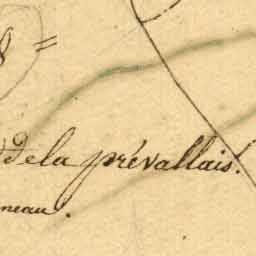 de la prévallais.
neau.